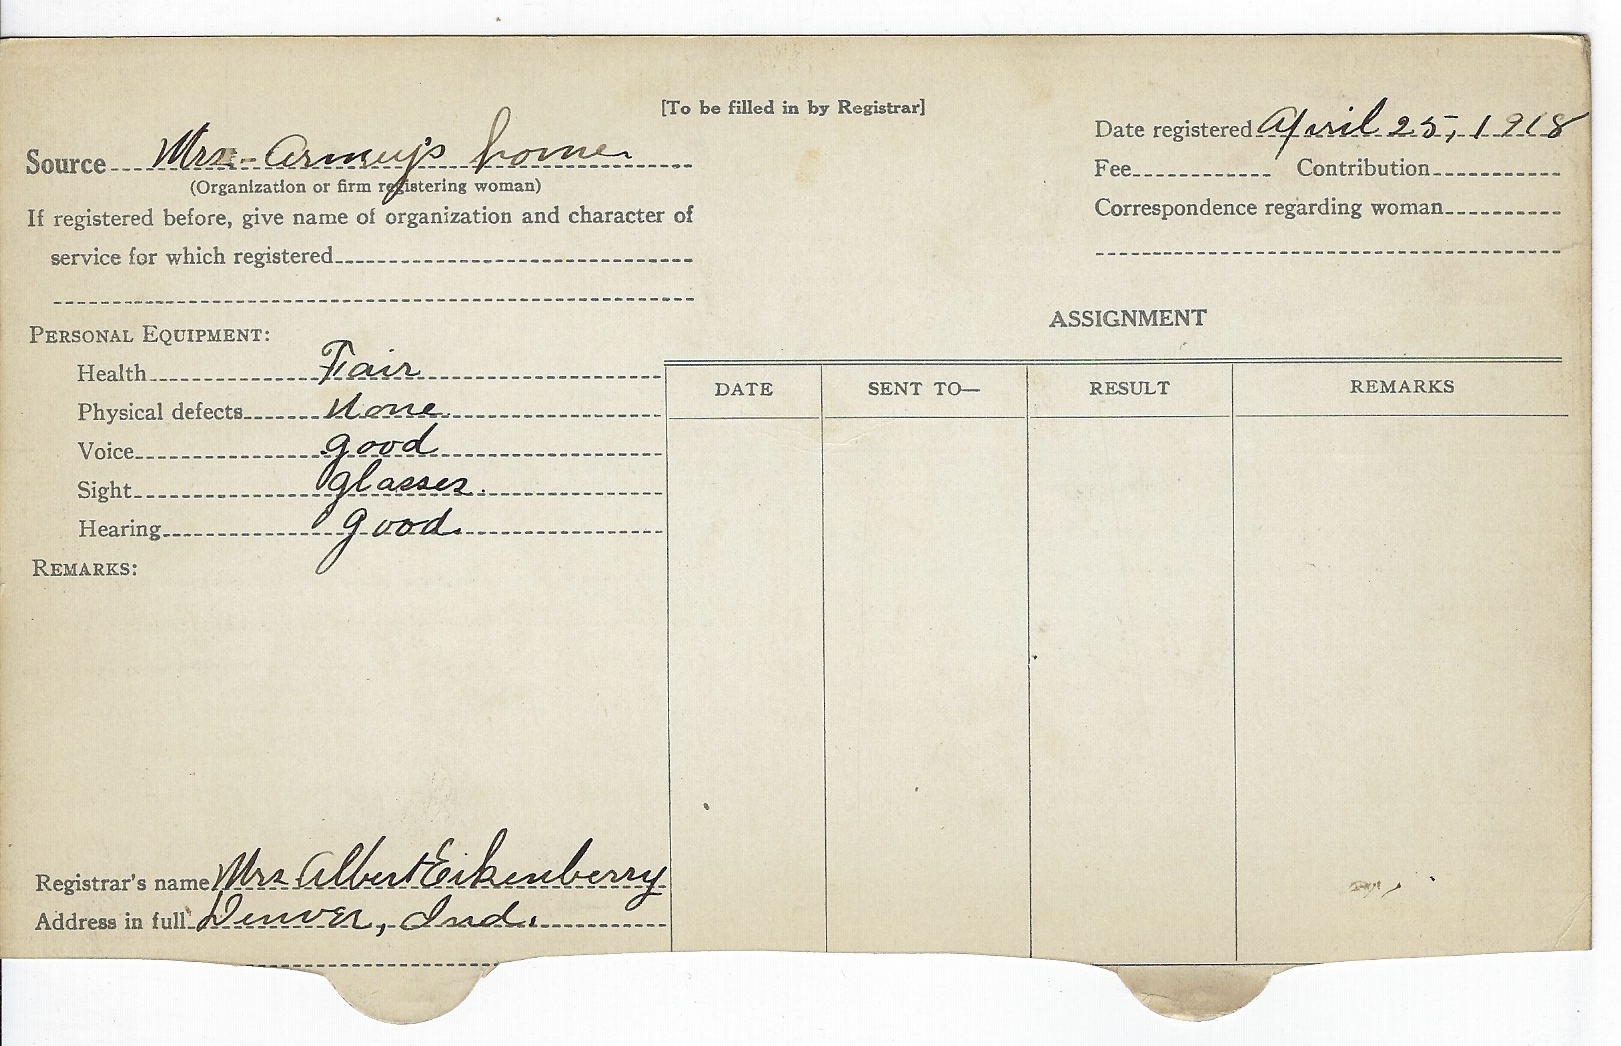 [To be filled in by Registrar]
Source Mrs. Armey's home
(Organization or firm registering woman)
If registered before, give name of organization and character of
service for which registered
Date registered April 25, 1918
Fee Contribution
Correspondence regarding woman
PERSONAL EQUIPMENT:
Health Fair
Physical defects None
Voice good
Sight glasses.
Hearing good.
REMARKS:
Registrar's name Mrs Albert Eikenberry
Address in full Denver, Ind.
ASSIGNMENT
DATE SENT TO— RESULT REMARKS